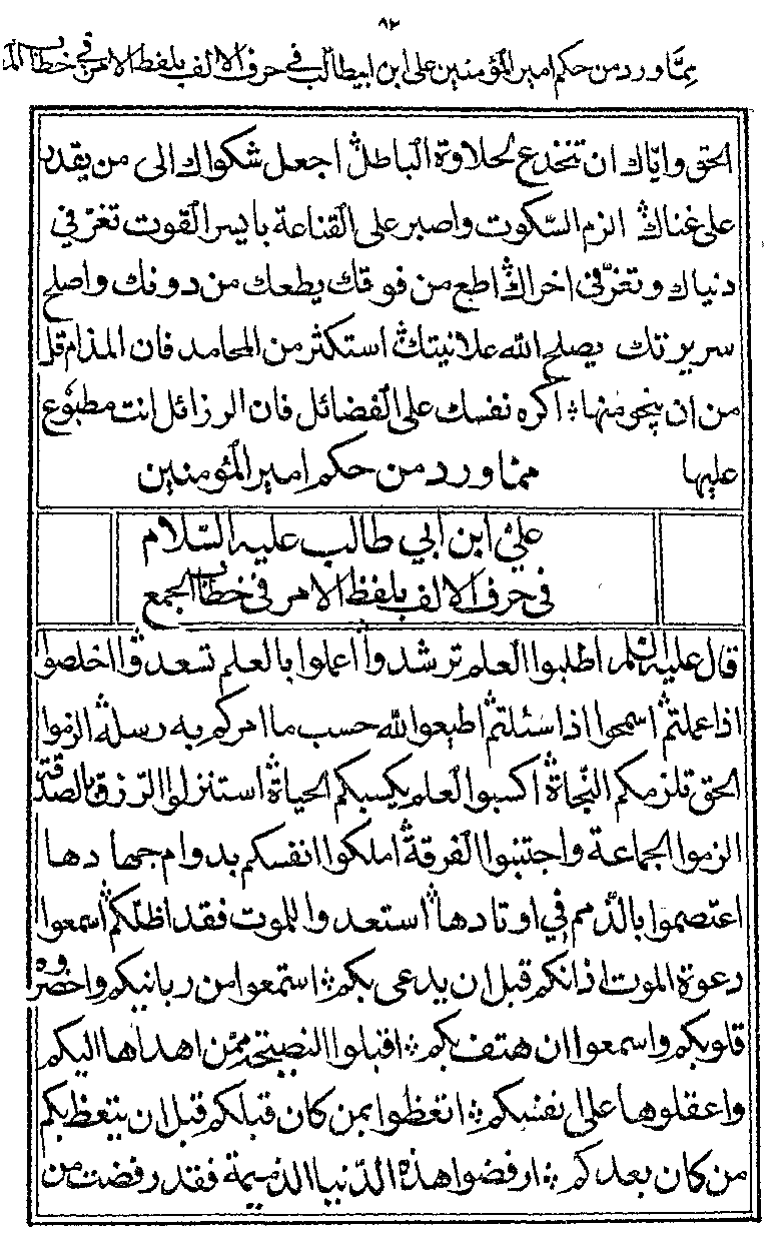 ٩٢
مما ورد من حكم امير المؤمنين علي ابن ابيطالب في حرف الالف بلفظ الامر في خطاب
الحق واياك ان تنخدع لحلاوة الباطل اجعل شكواك الى من يقدر
على غناك الزم السكوت واصبر على القناعة بايسر القوت تعز في
دنياك وتعز في اخراك اطع من فوقك يطعك من دونك واصلح
سريرتك يصلح الله علانيتك استكثر من المحامد فان المذام قل
من ان ينجو منها اكره نفسك على الفضائل فان الرزائل انت مطبوع
عليها مما ورد من حكم امير المؤمنين
علي ابن ابي طالب عليه السلام
في حرف الالف بلفظ الامر في خطاب الجمع
قال عليه السلم اطلبوا العلم ترشدوا اعملوا بالعلم تسعدوا اخلصوا
اذا عملتم اسمحوا اذا سئلتم اطيعوا الله حسب ما امركم به رسله الزموا
الحق تلزمكم النجاة اكسبوا العلم يكسبكم الحياة استنزلوا الرزق بالصدقة
الزموا الجماعة واجتنبوا الفرقة املكوا انفسكم بدوام جهادها
اعتصموا بالذمم في اوتادها استعدوا للموت فقد اظلكم اسمعوا
دعوة الموت اذانكم قبل ان يدعى بكم استمعوا من ربانيكم واحضروه
قلوبكم واسمعوا ان هتف بكم اقبلوا النصيحة ممن اهداها اليكم
واعقلوها على انفسكم اتعظوا بمن كان قبلكم قبل ان يتعظ بكم
من كان بعدكم ارفضوا هذه الدنيا الذميمة فقد رفضت من